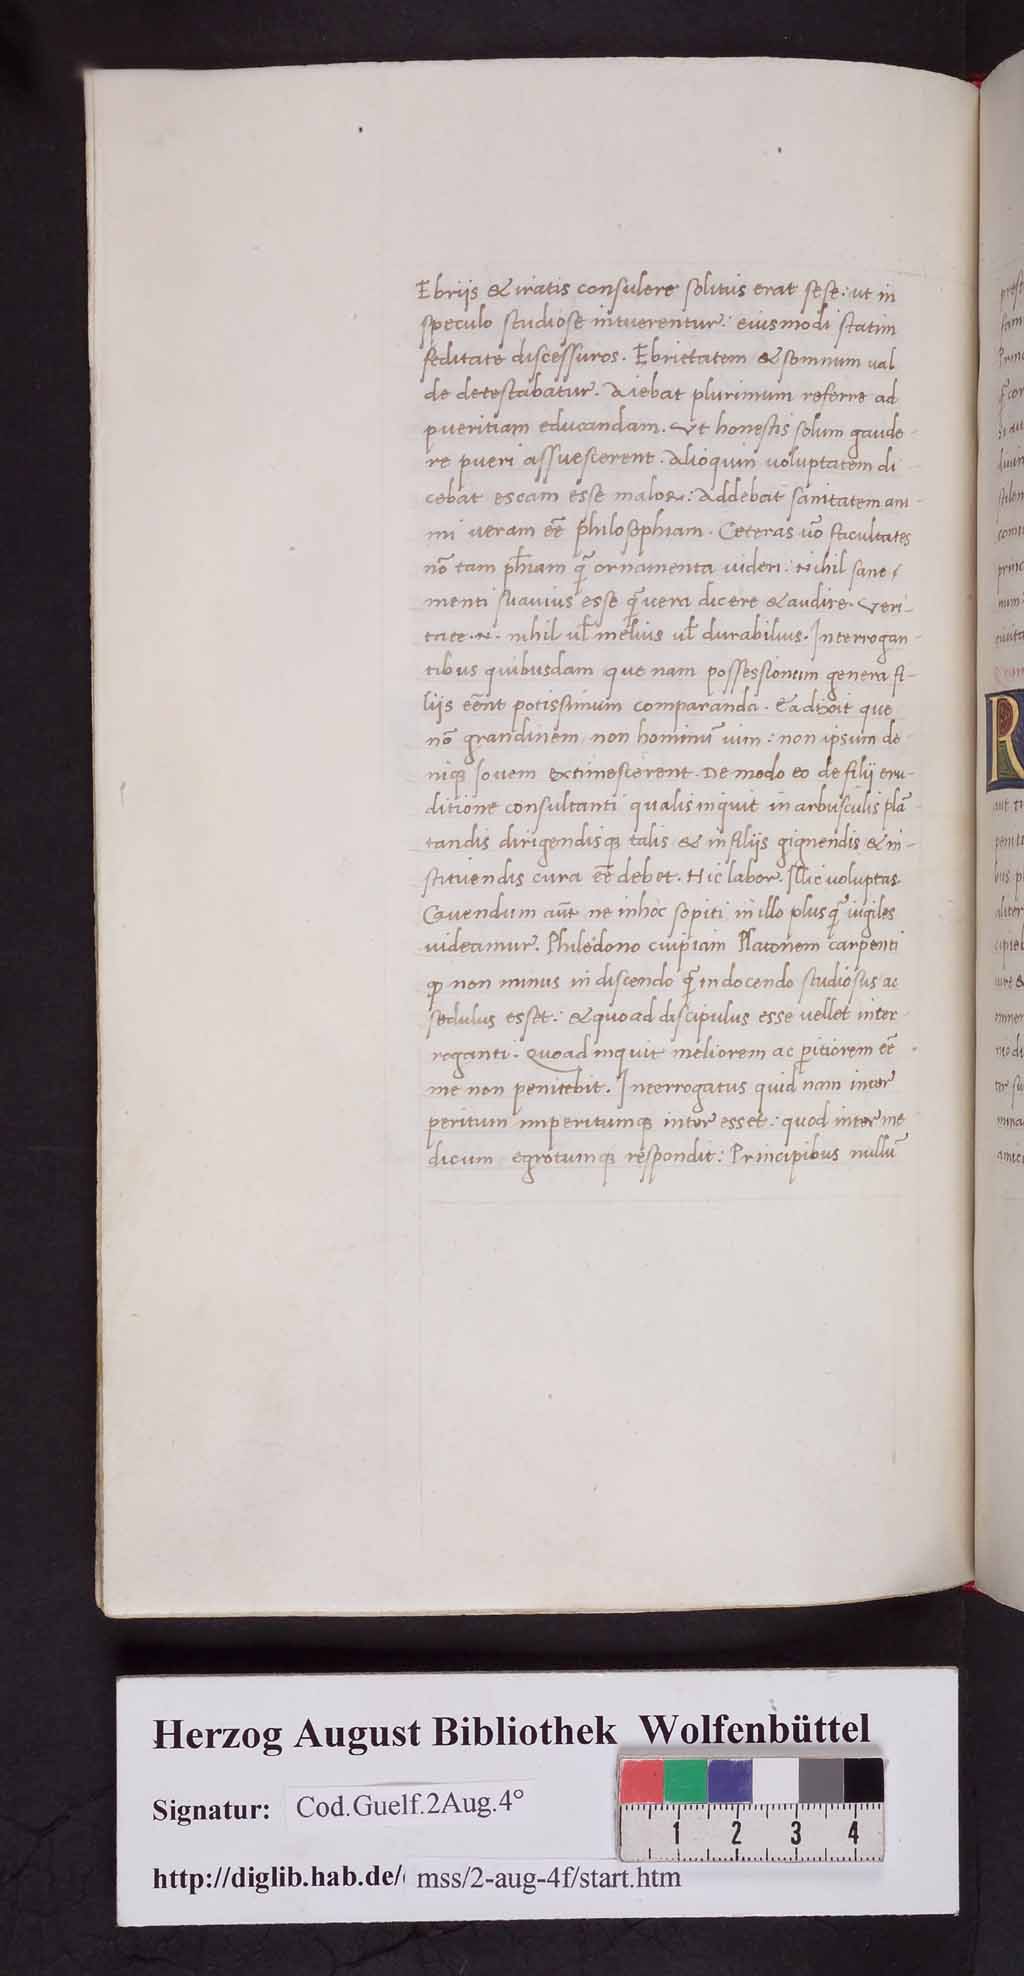 Ebrijs & iratis consulere solitus erat sese: ut in
speculo studiose intuerentur: eiusmodi statim
feditate discessuros. Ebrietatem & somnum val
de detestabatur. Aiebat plurimum referre ad
pueritiam educandam. Vt honestis solum gaude-
re pueri assuescerent. Alioquin uoluptatem di-
cebat escam esse maloꝝ: Addebat sanitatem ani-
mi ueram eē philosophiam. Ceteras uō facultates
nō tam ph̄iam q̄ ornamenta uideri: Nihil sane
menti suauius esse q̄ uera dicere & audire. Veri-
tate .n. nihil ul̄ melius ul̄ durabilius. Interrogan-
tibus quibusdam que nam possessionum genera fi-
liis eēnt potissimum comparanda. Ea dixit que
nō grandinem non hominū uim: non ipsum de-
niqꝫ Iouem extimescerent. De modo eo de filij eru-
ditione consultanti qualis inquit in arbusculis plā-
tandis dirigendisqꝫ talis & in filijs gignendis & in-
stituendis cura eē debet. Hic labor. Illic uoluptas
Cauendum aūt ne in hoc sopiti in illo plusq̄ uigiles
uideamur. Philedono cuipiam Platonem carpenti
ꝙ non minus in discendo q̄ in docendo studiosus ac
sedulus esset: & quoad discipulus esse uellet inter-
roganti. Quoad inquit meliorem ac ꝑitiorem eē
me non penitebit. Interrogatus quid nam inter
peritum imperitumqꝫ inter esset: quod inter me
dicum egrotumqꝫ respondit: Principibus nullū
R
Herzog August Bibliothek Wolfenbüttel
Signatur: Cod.Guelf.2Aug.4°
1 2 3 4
http://diglib.hab.de/ mss/2-aug-4f/start.htm